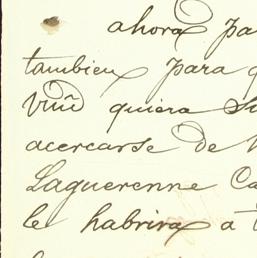 ahora pa
tambien para q
quiera su
acercarse de
Laguerenne Ca
le habrira a